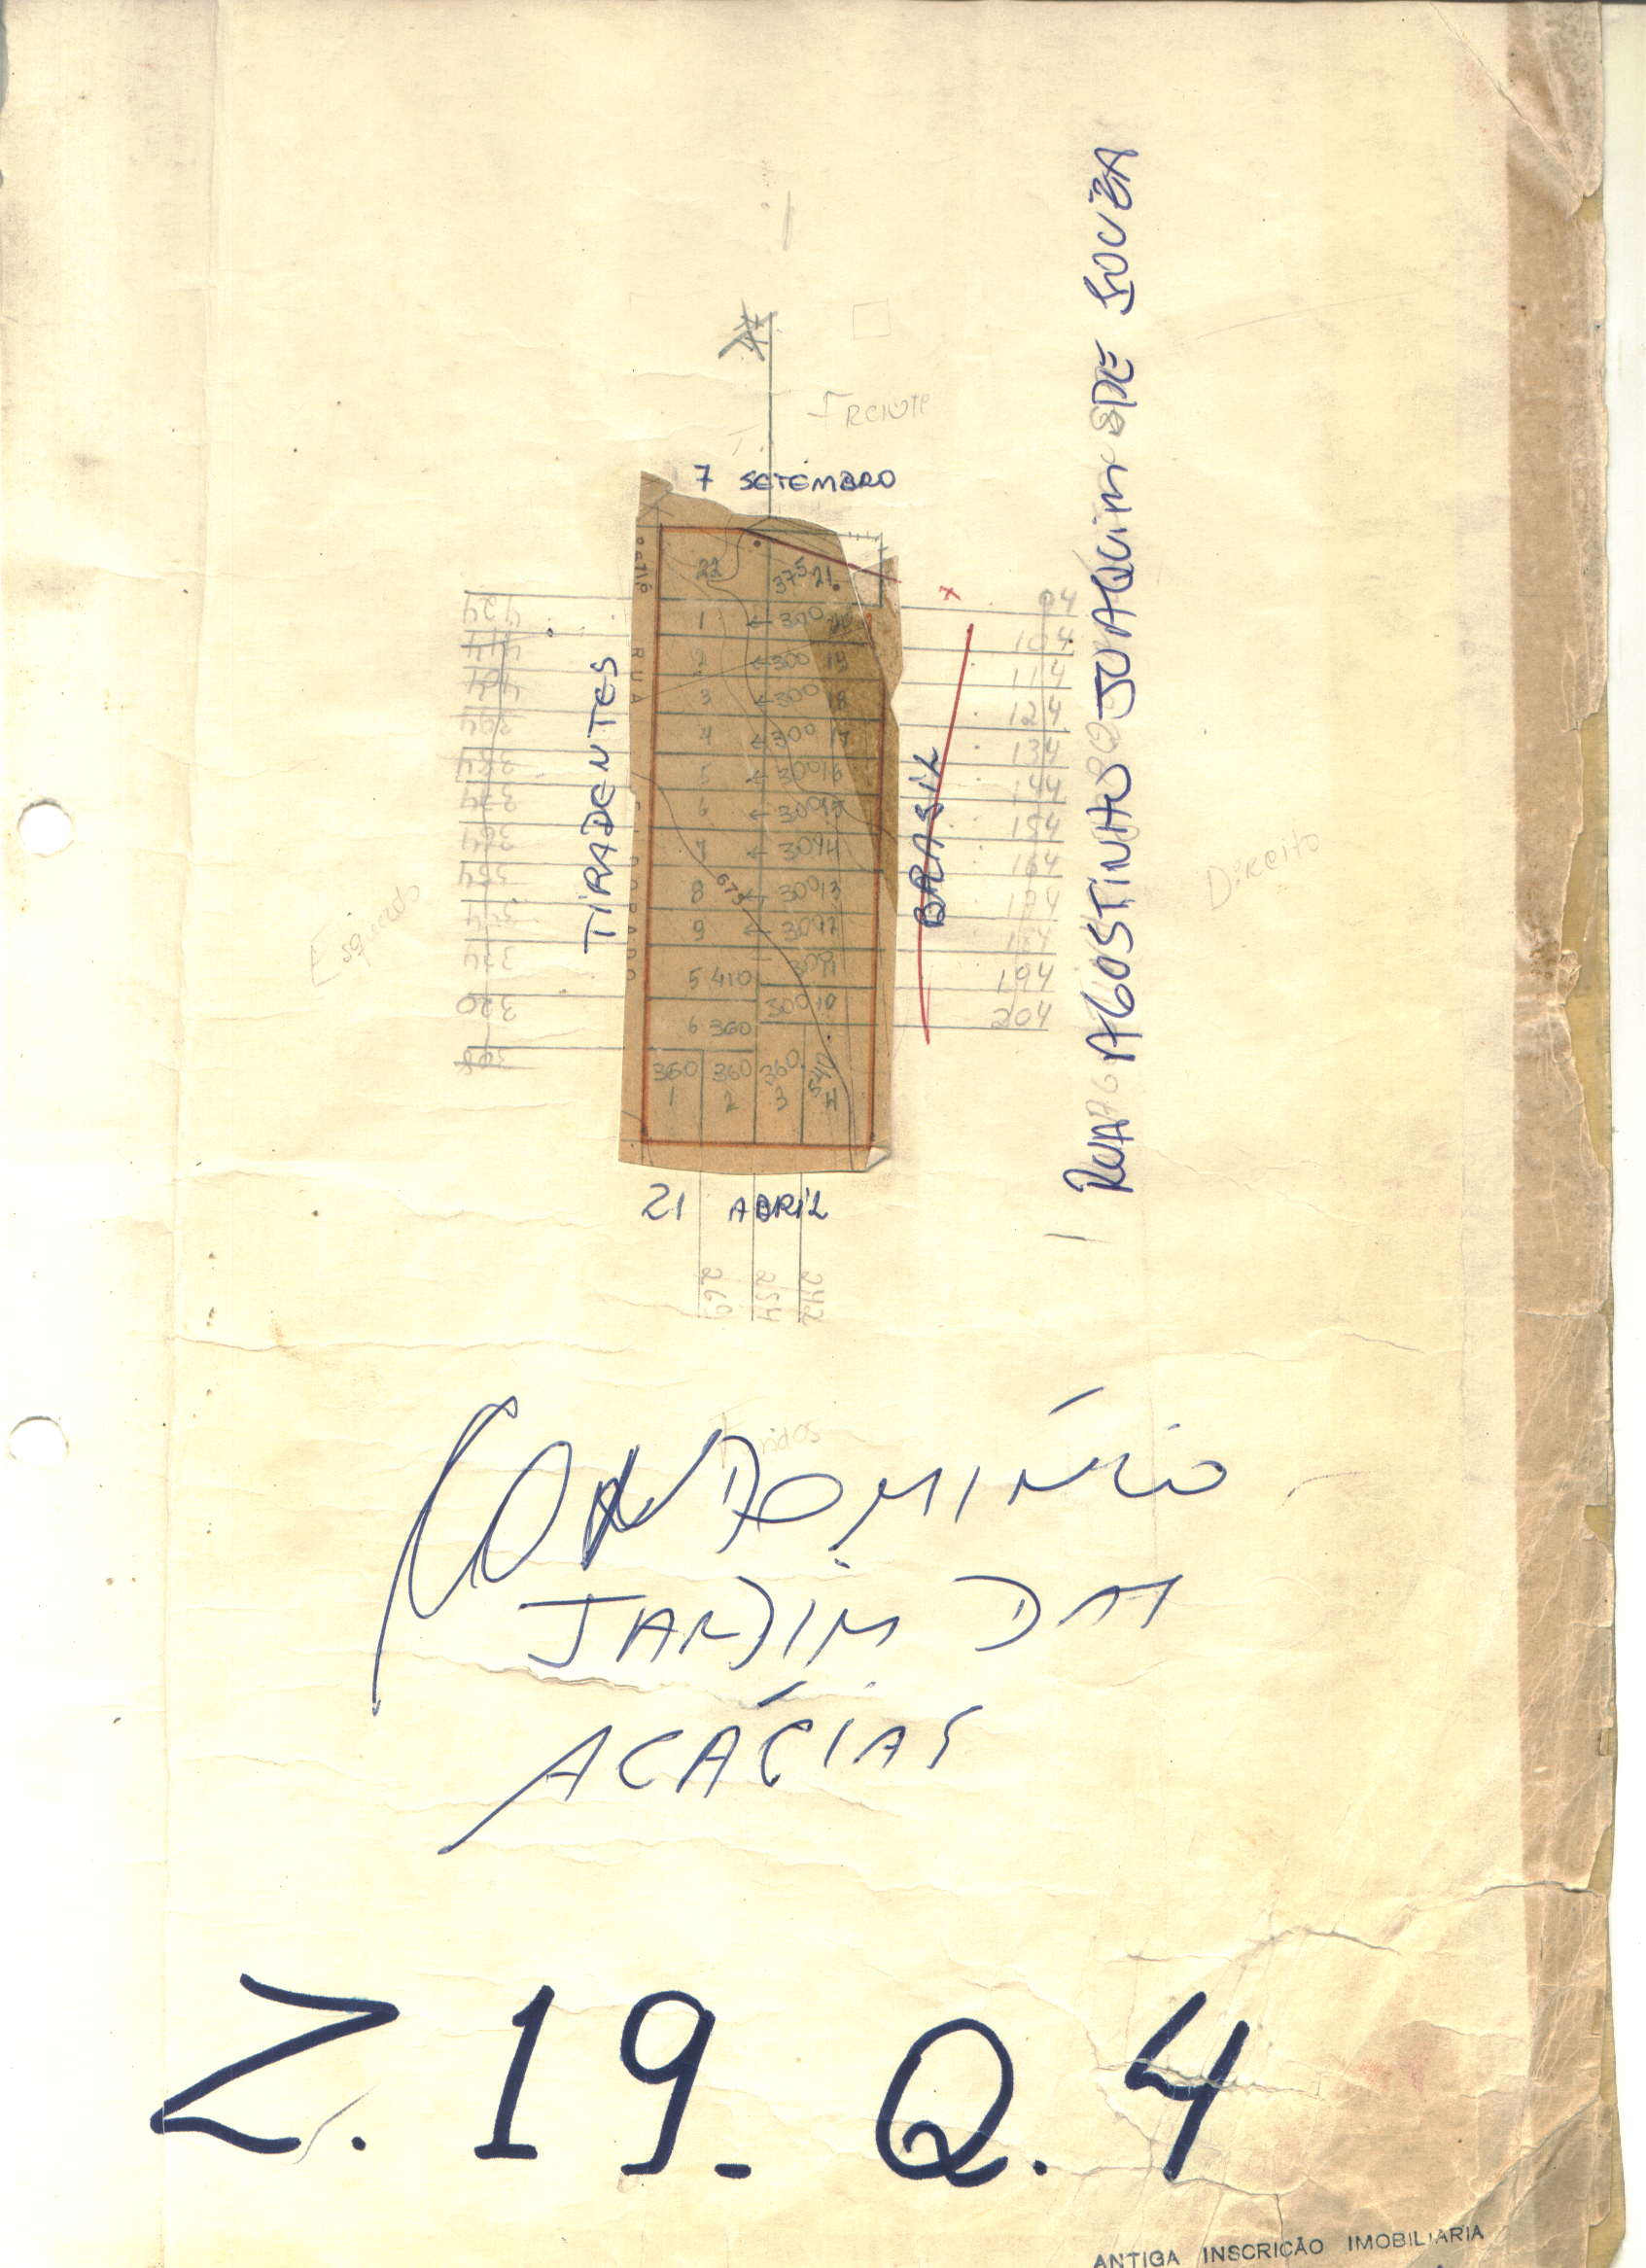 Frente
7 SETEMBRO
22
37⁵ 21
1 ← 300
2 ← 300 19
3 ← 300 18
4 ← 300 17
5 ← 300 16
6 ← 300 15
7 ← 30 14
8 ← 300 13
9 ← 30 12
5 410 300 11
6 360 300 10
360 360 360 540
1 2 3 4
675
RUA
TIRADENTES
BRASIL
RUA AGOSTINHO JOAQUIM DE SOUZA
x
04
104
114
124
134
144
154
164
174
184
194
204
424
414
404
394
384
374
364
354
344
334
320
308
Esquerdo
Direito
21 ABRIL
269 254 242
Fundos
CONDOMÍNIO
JARDIM DAS
ACÁCIAS
Z. 19. Q. 4
ANTIGA INSCRIÇÃO IMOBILIARIA